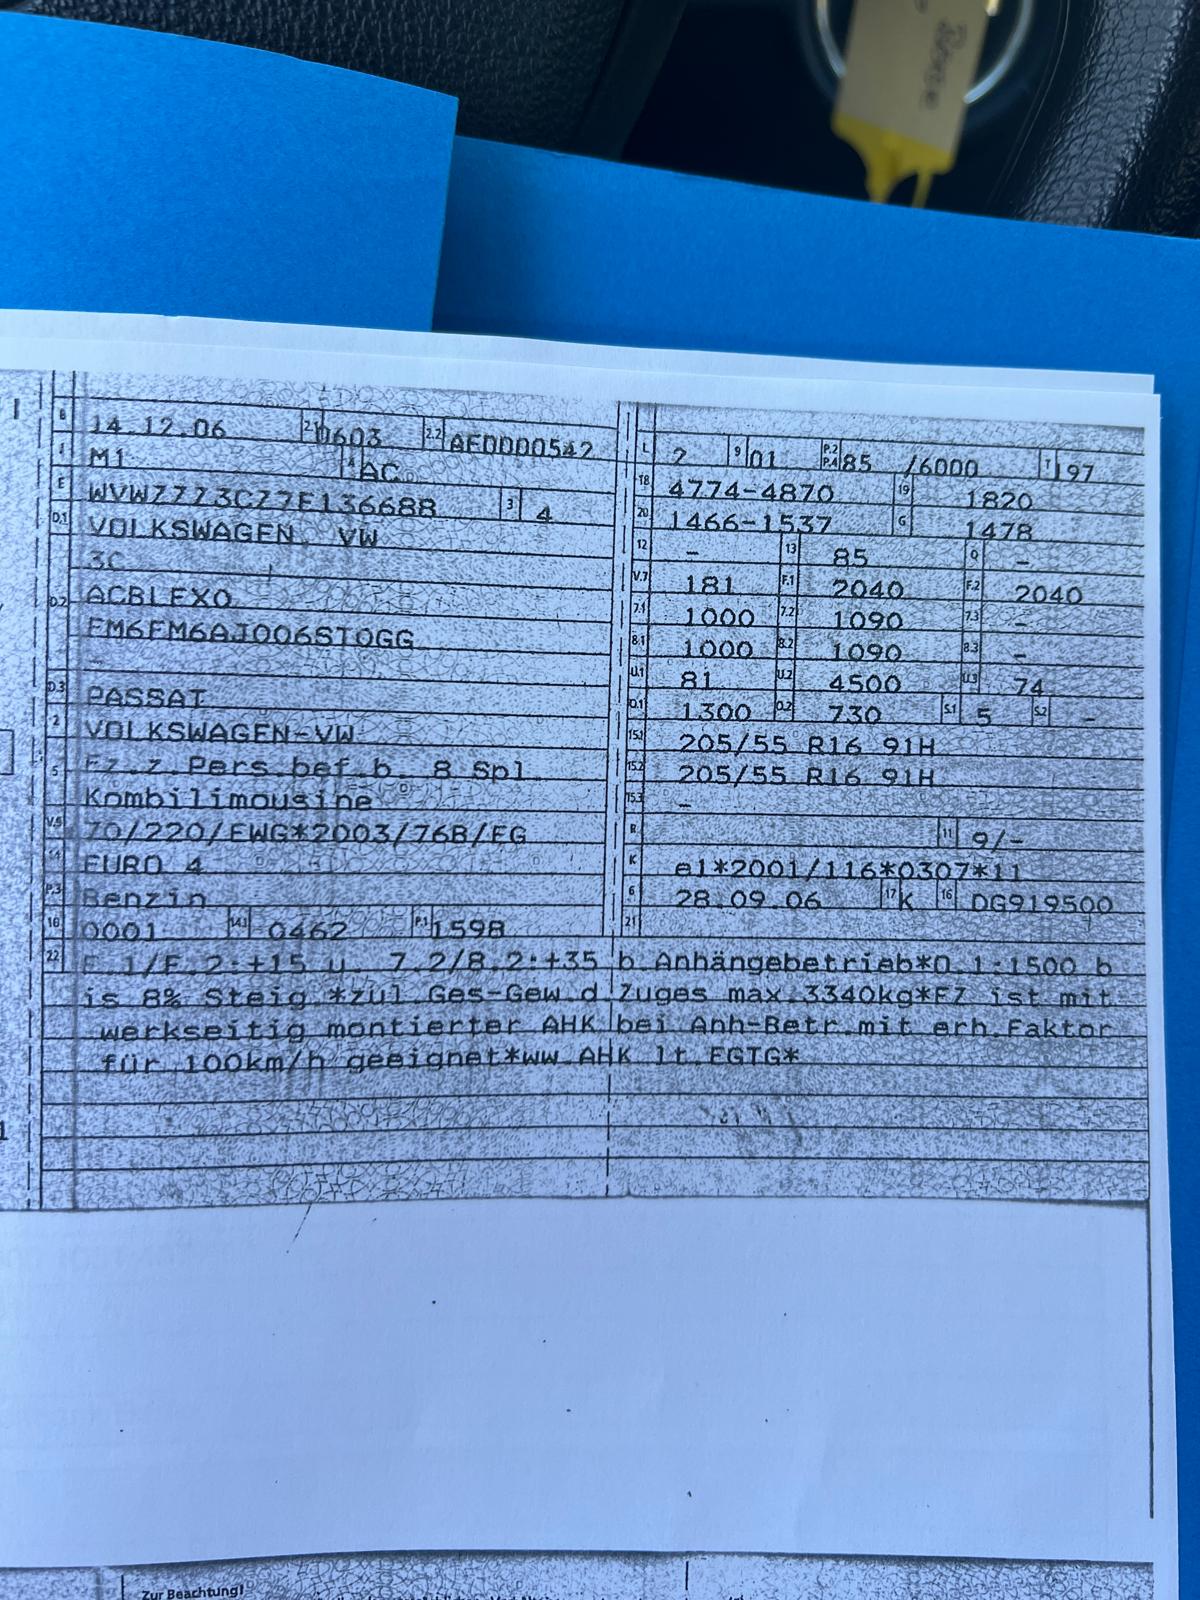 B 14.12.06 2.1 0603 2.2 AEO000542
J M1 4 AC
E WVWZZZ3CZ7E136688 3 4
D.1 VOLKSWAGEN, VW
3C
D.2 ACBLEX0
FM6FM6AJ006ST0GG
–
D.3 PASSAT
2 VOLKSWAGEN-VW
5 Fz.z.Pers.bef.b. 8 Spl
Kombilimousine
V.9 70/220/EWG*2003/76B/EG
14 EURO 4
P.3 Benzin
10 0001 14.1 0462 P.1 1598
L 2 9 01 P.2 P.4 85 /6000 T 197
18 4774-4870 19 1820
20 1466-1537 G 1478
12 – 13 85 Q –
V.7 181 F.1 2040 F.2 2040
7.1 1000 7.2 1090 7.3 –
8.1 1000 8.2 1090 8.3 –
U.1 81 U.2 4500 U.3 74
O.1 1300 O.2 730 S.1 5 S.2 –
15.1 205/55 R16 91H
15.2 205/55 R16 91H
15.3 –
R 11 9/–
K e1*2001/116*0307*11
6 28.09.06 17 K 16 DG919500
21
22 F.1/F.2:+15 u. 7.2/8.2:+35 b.Anhängebetrieb*O.1:1500 b
is 8% Steig.*zul.Ges-Gew.d.Zuges max.3340kg*FZ ist mit
werkseitig montierter AHK bei Anh-Betr.mit erh.Faktor
für 100km/h geeignet*ww.AHK lt.EGTG*
Zur Beachtung!